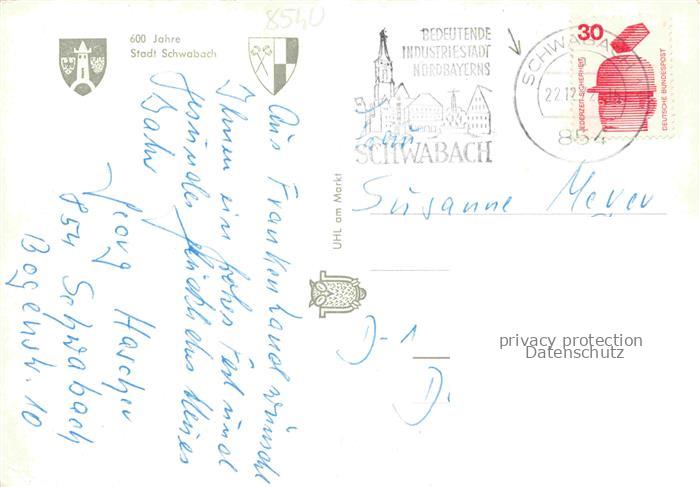 8540
600 Jahre
Stadt Schwabach
Aus Frankenland wünscht
Ihnen ein frohes Fest und
gesundes glückliches neues
Jahr
Georg Hascher
854 Schwabach
Bogenstr. 10
BEDEUTENDE
INDUSTRIESTADT
NORDBAYERNS
SCHWABACH
SCHWABACH
22.12.
854
30
JEDERZEIT-SICHERHEIT
DEUTSCHE BUNDESPOST
UHL am Markt
Susanne Meyer
D-1
D.
privacy protection
Datenschutz